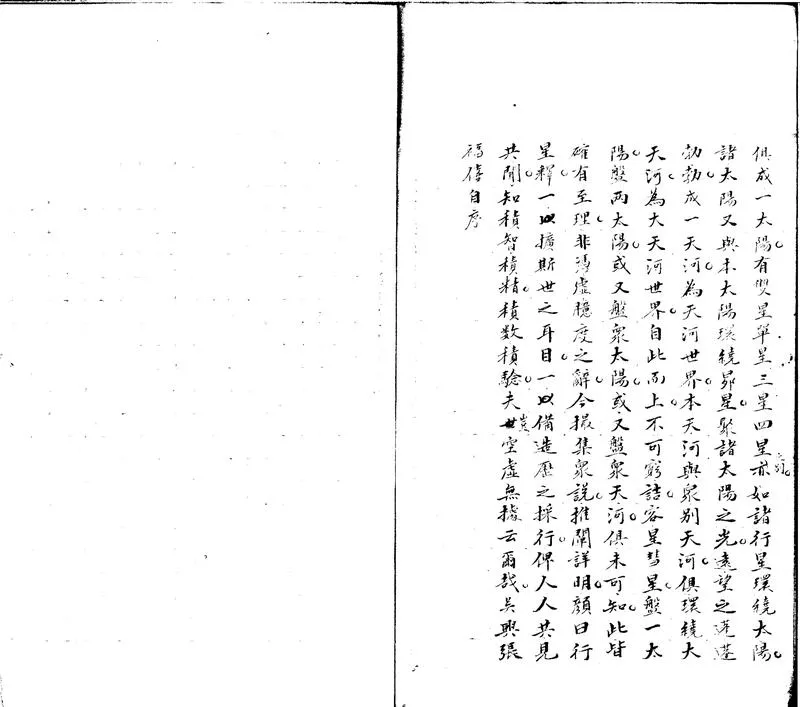 俱成一太陽有雙星單星三星四星亦如諸行星環繞太陽
諸太陽又與本太陽環繞昴星聚諸太陽之光遠望之蓬蓬
勃勃成一天河為天河世界本天河與眾別天河俱環繞大
天河為大天河世界自此而上不可窮詰客星彗星盤一太
陽盤兩太陽或又盤眾太陽或又盤眾天河俱未可知此皆
確有至理非憑虛臆度之辭今撮集眾說推闡詳明顏曰行
星釋一以擴斯世之耳目一以備造歷之採行俾人人共見
共聞知積智積精積数積驗夫豈空虛無據云爾哉吳興張
福僖自序